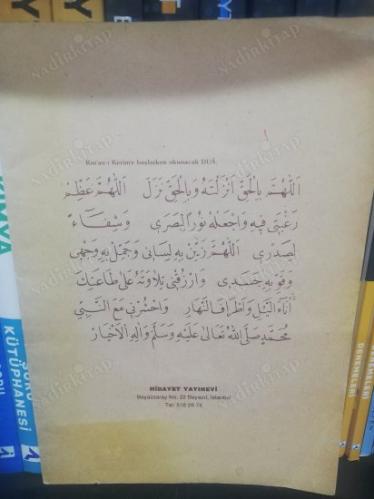 Kur'an-ı Kerim'e başlarken okunacak DUÂ.
اَللّٰهُمَّ بِالْحَقِّ اَنْزَلْتَهُ وَبِالْحَقِّ نَزَلَ اَللّٰهُمَّ عَظِّمْ
رَغْبَتِي فِيهِ وَاجْعَلْهُ نُورًا لِبَصَرِي وَشِفَاءً
لِصَدْرِي اَللّٰهُمَّ زَيِّنْ بِهِ لِسَانِي وَجَمِّلْ بِهِ وَجْهِي
وَقَوِّ بِهِ جَسَدِي وَارْزُقْنِي تِلَاوَتَهُ عَلَى طَاعَتِكَ
اٰنَاءَ اللَّيْلِ وَاَطْرَافَ النَّهَارِ وَاحْشُرْنِي مَعَ النَّبِيِّ
مُحَمَّدٍ صَلَّى اللّٰهُ تَعَالَى عَلَيْهِ وَسَلَّمَ وَاٰلِهِ الْاَخْيَارِ
HİDAYET YAYINEVİ
Beyazsaray No: 22 Beyazıt, İstanbul
KİMYA
KÜTÜPHANESİ
DENEMELERİ
nadirkitap